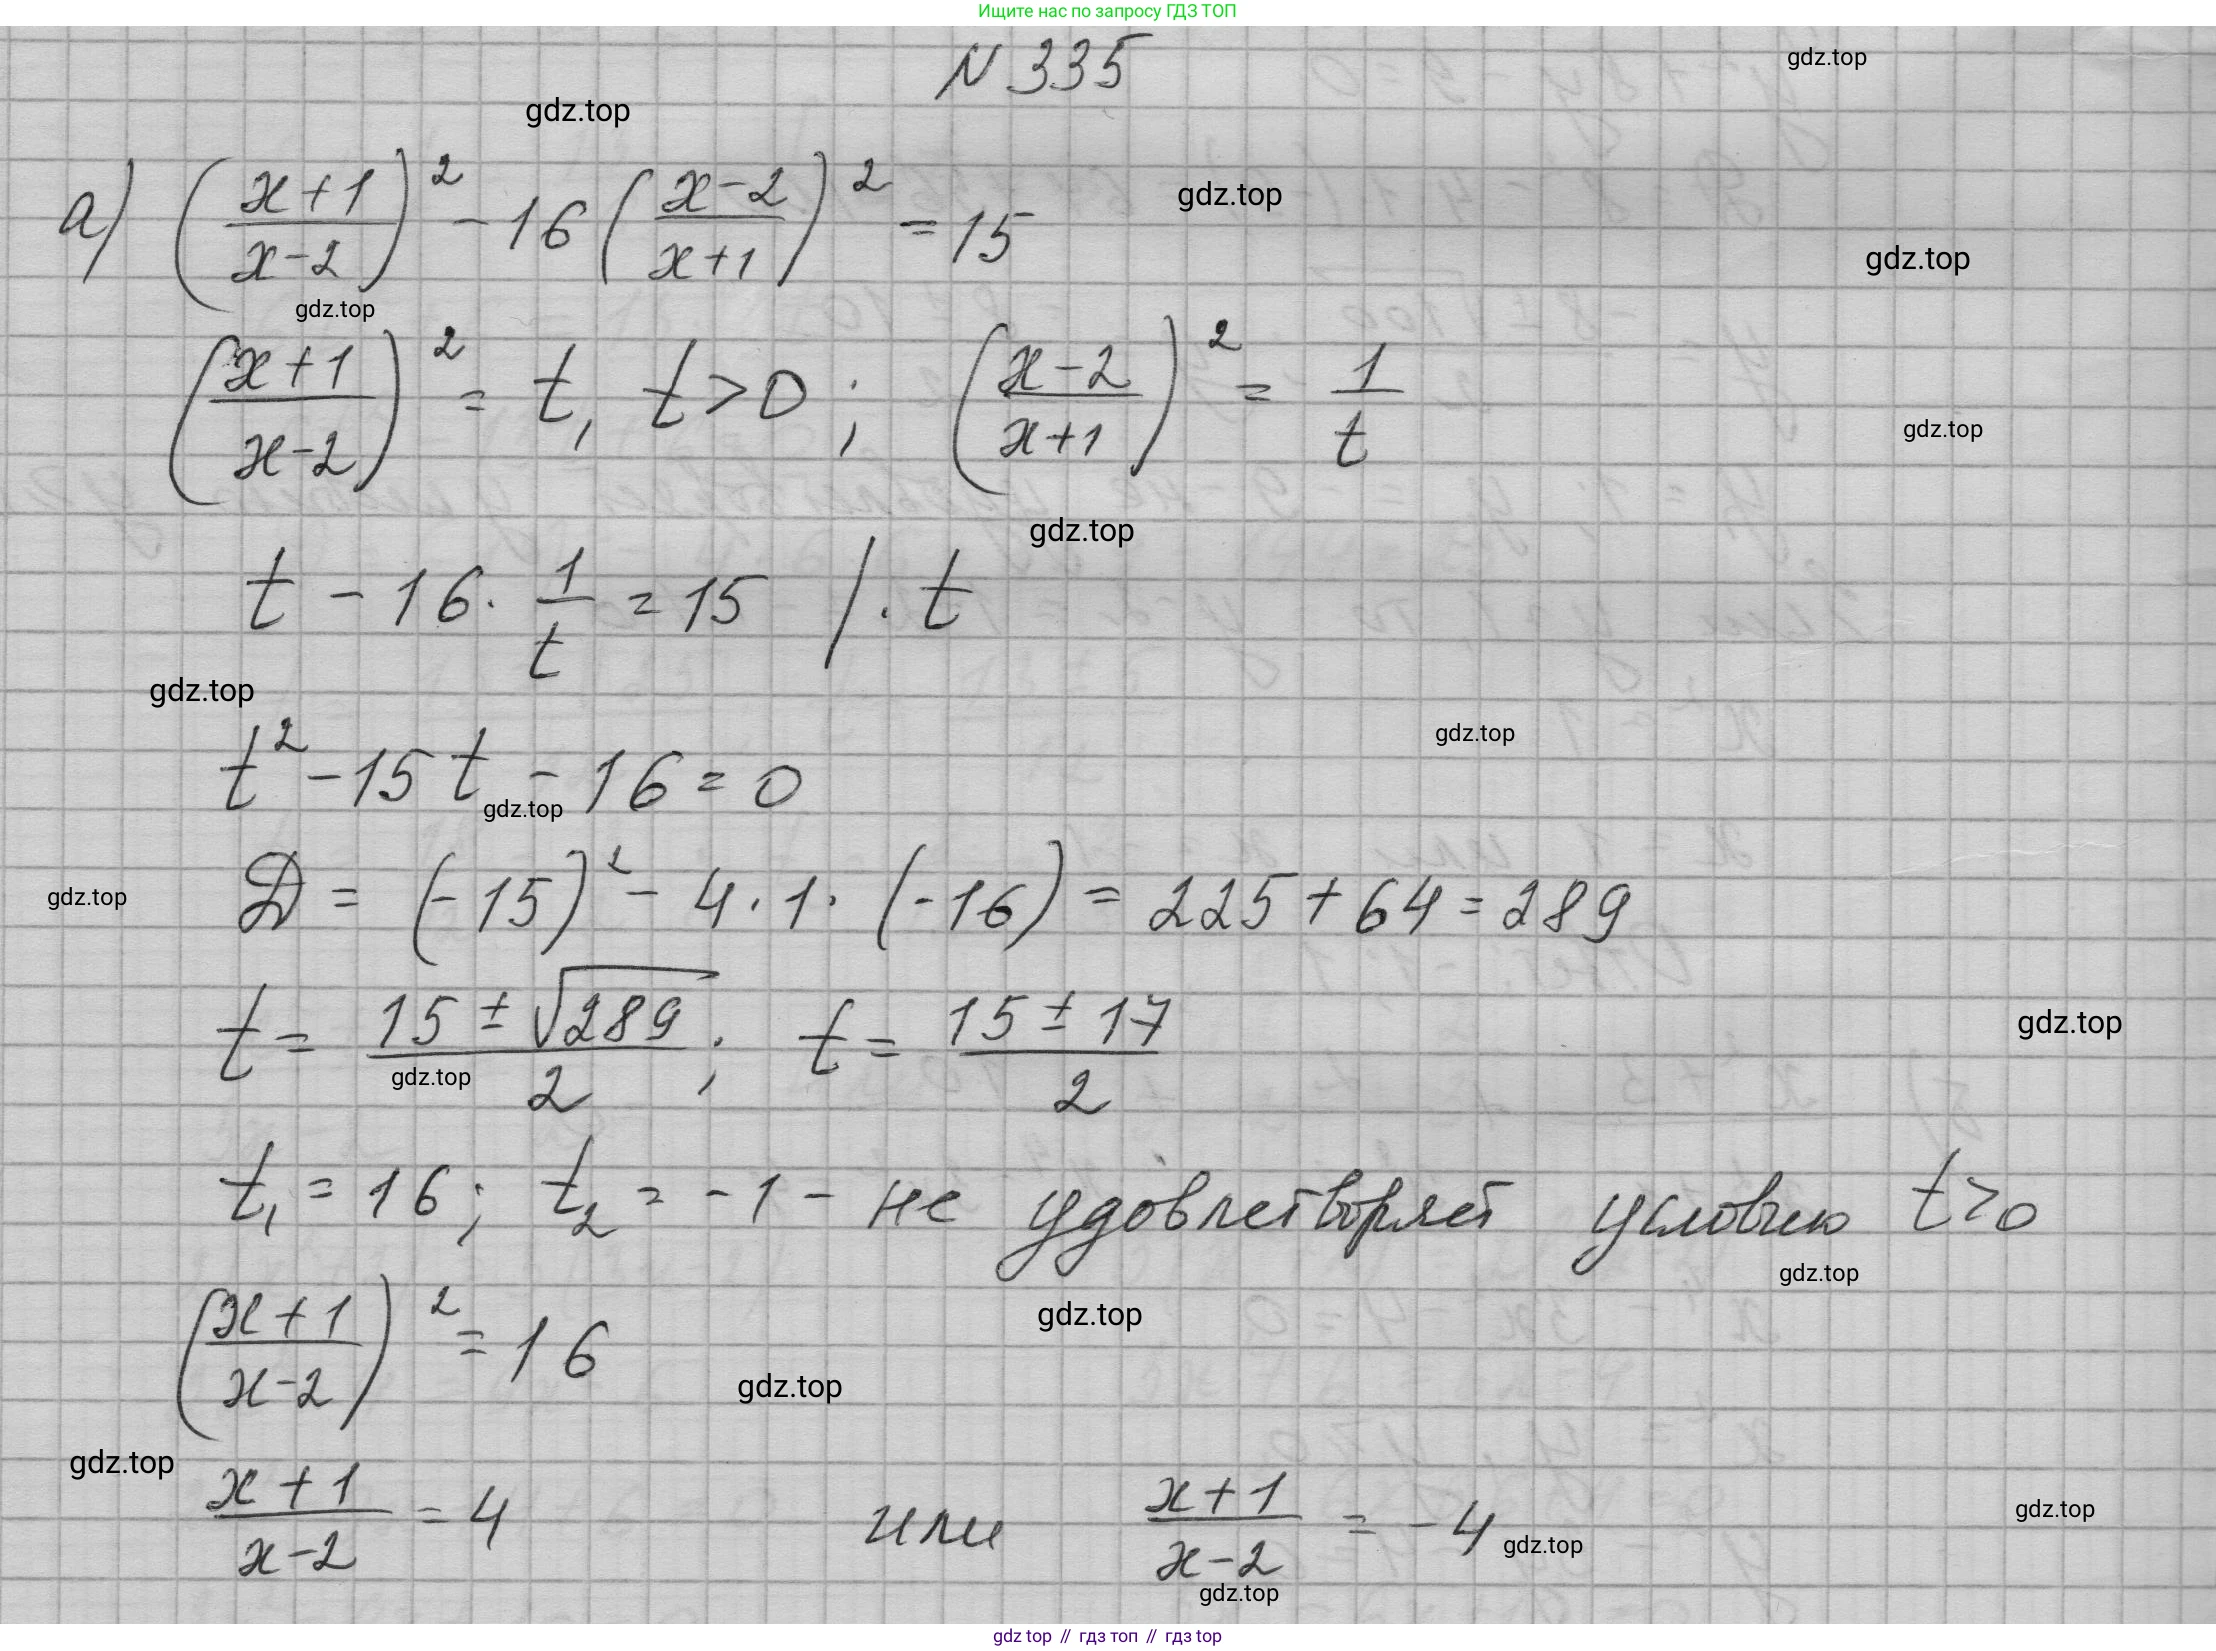 Ищите нас по запросу ГДЗ ТОП
N 335
gdz.top
gdz.top
а) ((x+1)/(x-2))² - 16((x-2)/(x+1))² = 15
gdz.top
gdz.top
gdz.top
((x+1)/(x-2))² = t, t > 0; ((x-2)/(x+1))² = 1/t
gdz.top
gdz.top
t - 16 · 1/t = 15 / · t
gdz.top
gdz.top
t² - 15t - 16 = 0
gdz.top
gdz.top
D = (-15)² - 4 · 1 · (-16) = 225 + 64 = 289
t = (15 ± √289)/2; t = (15 ± 17)/2
gdz.top
gdz.top
t₁ = 16; t₂ = -1 - не удовлетворяет условию t>0
gdz.top
gdz.top
((x+1)/(x-2))² = 16
gdz.top
gdz.top
(x+1)/(x-2) = 4 или (x+1)/(x-2) = -4
gdz.top
gdz.top
gdz.top
gdz top // гдз топ // гдз top